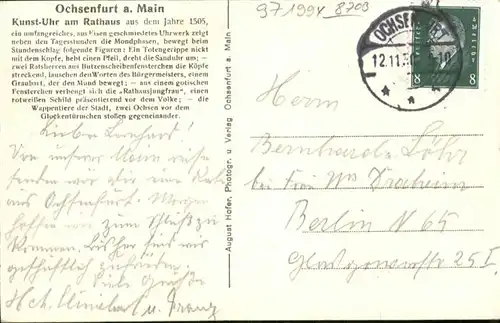 Ochsenfurt a. Main
Kunst-Uhr am Rathaus aus dem Jahre 1505,
ein umfangreiches, aus Eisen geschmiedetes Uhrwerk zeigt
neben den Tagesstunden die Mondphasen, bewegt beim
Stundenschlag folgende Figuren: Ein Totengerippe nickt
mit dem Kopfe, hebt einen Pfeil, dreht die Sanduhr um; —
zwei Ratsherren aus Butzenscheibenfensterchen die Köpfe
streckend, lauschen den Worten des Bürgermeisters, einem
Graubost, der den Mund bewegt; — aus einem gotischen
Fensterchen verbeugt sich die „Rathausjungfrau“, einen
rotweißen Schild präsentierend vor dem Volke; — die
Wappentiere der Stadt, zwei Ochsen vor dem
Glockentürmchen stoßen gegeneinander.
Lieber Bernhard!
Von unserer Main reise
senden wir dir eine Karte
aus Ochsenfurt. Morgen
hoffen wir zum Schluß zu
kommen. Bisher sind wir
geschäftlich zufrieden.
Viele Grüße
u. Franz
August Hofer, Photogr. u Verlag Ochsenfurt a. Main
971994 8703
OCHSENFURT
12.11.30
8 8
Herrn
Bernhard Löhr
bei Frau Ww Draheim
Berlin N 65
25 I